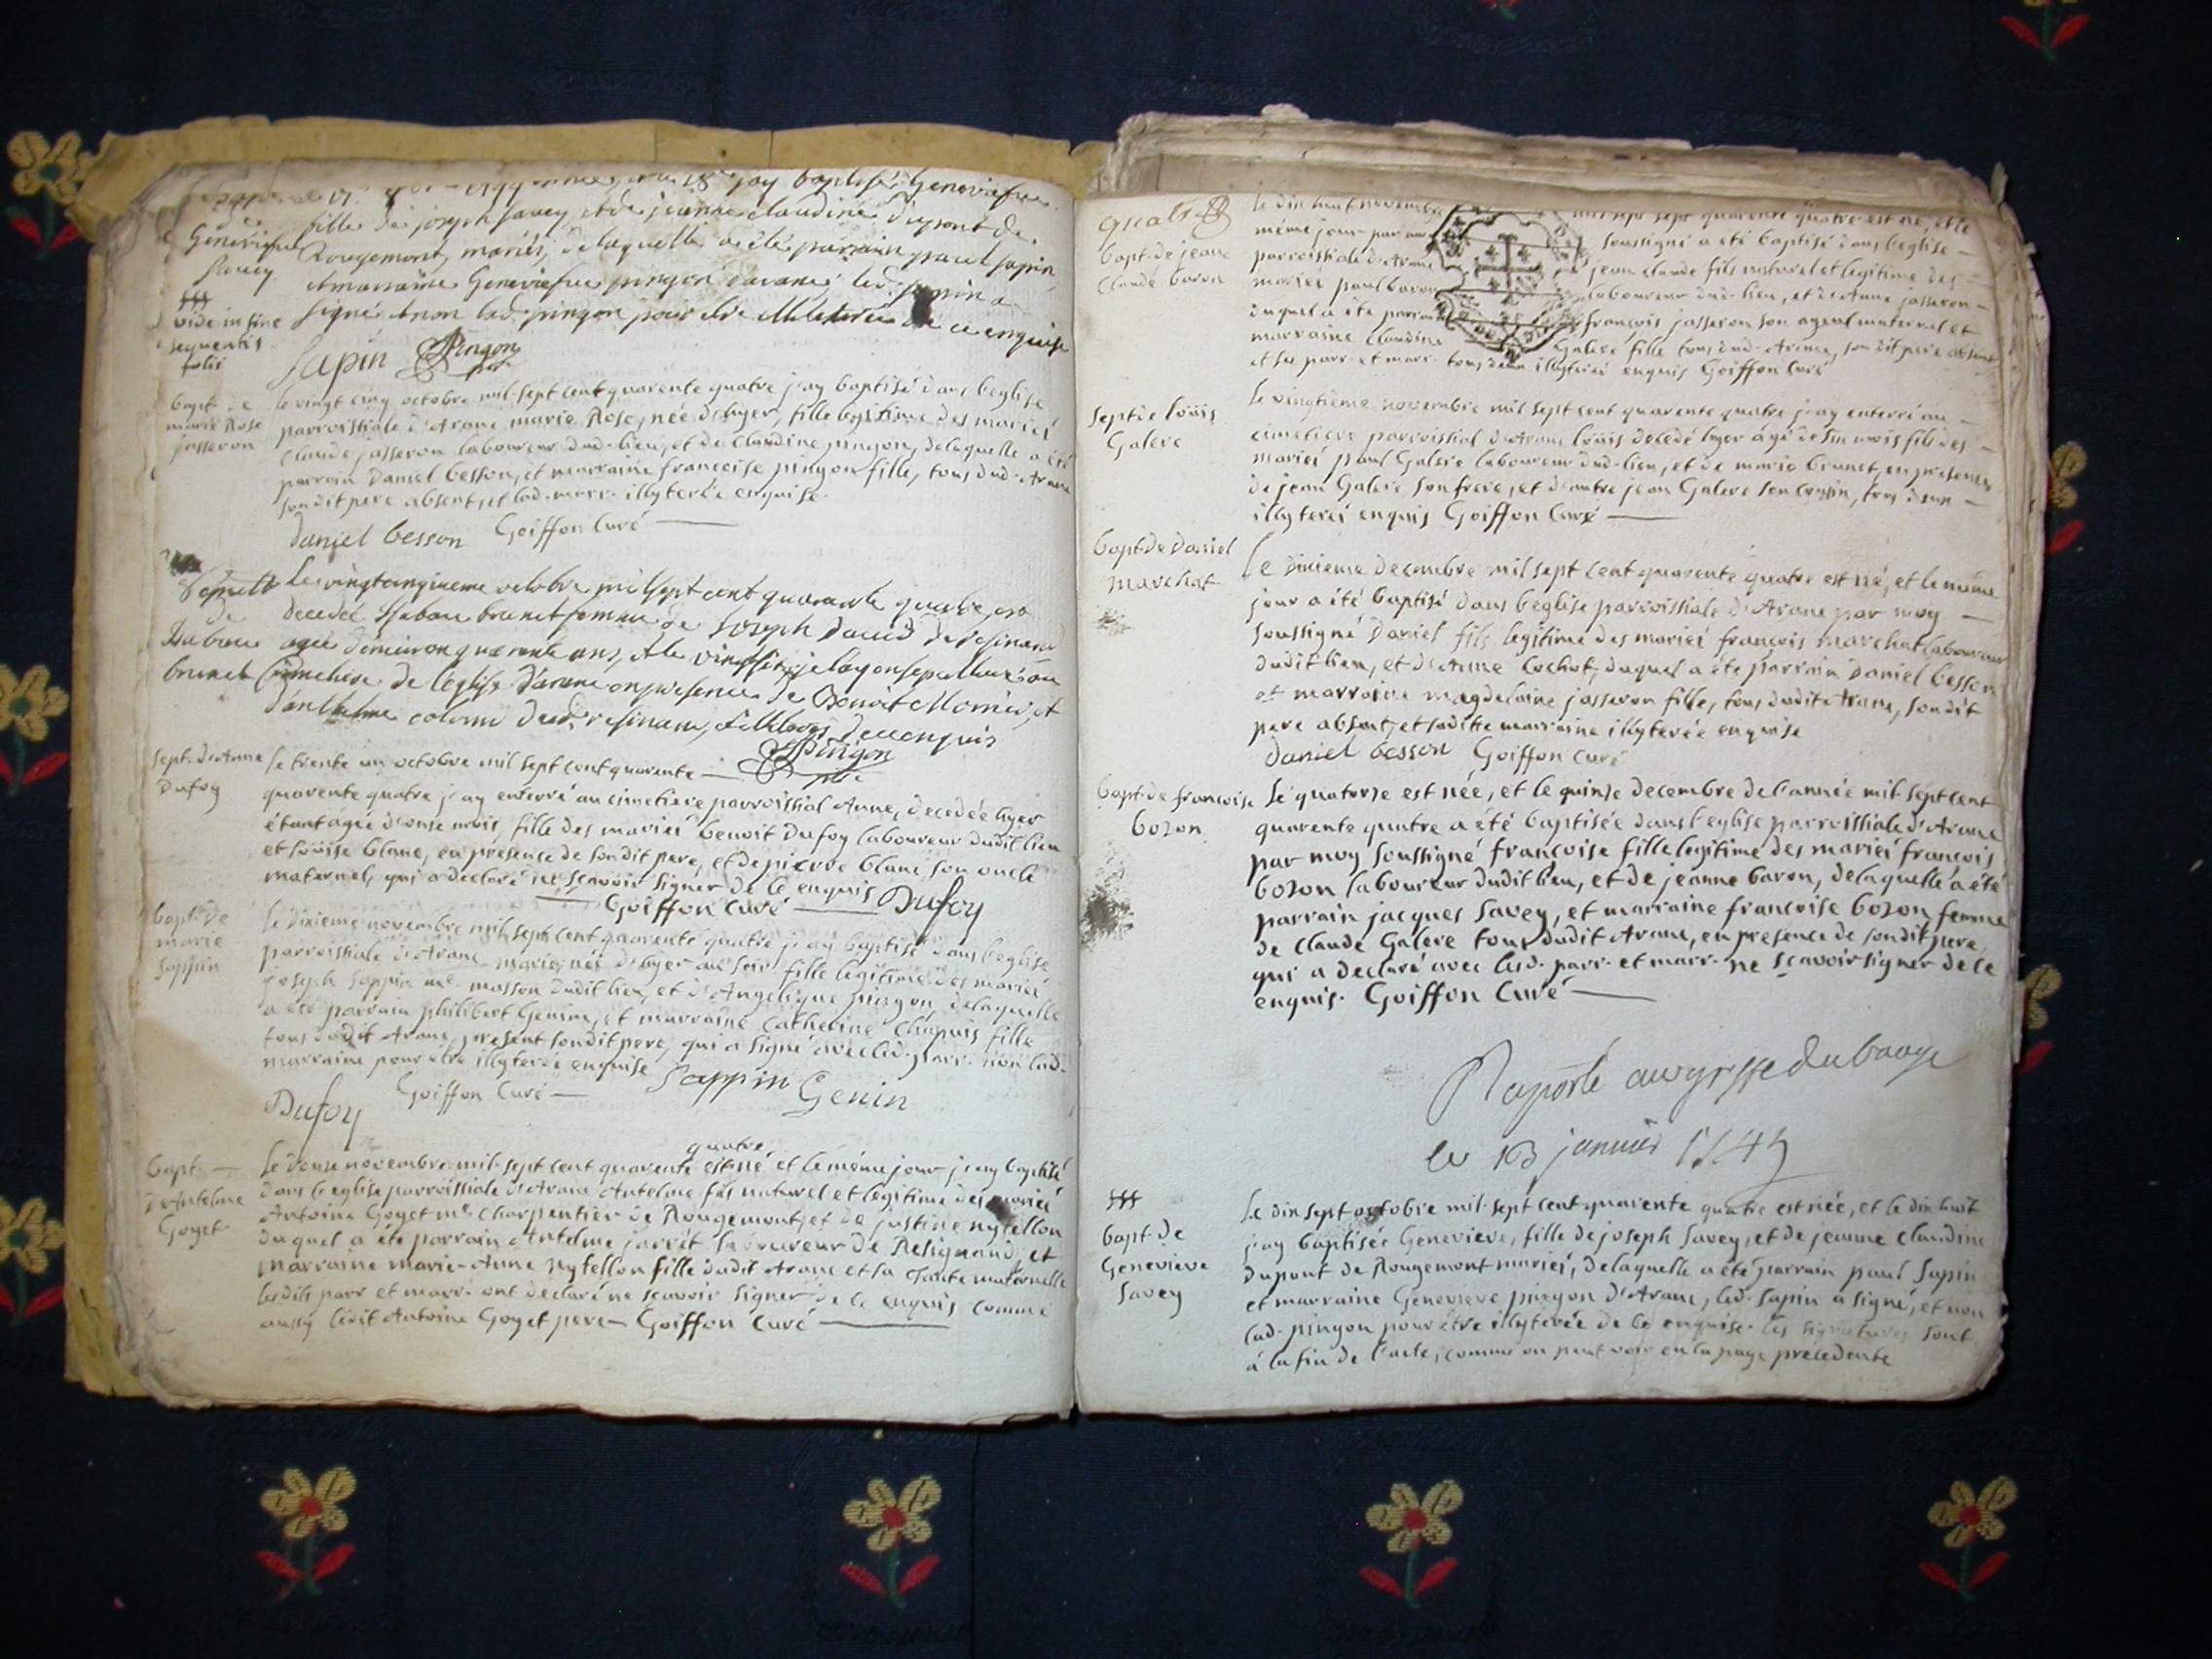 jay baptisé Geneviefve
Genevieve
Savey
fille de joseph savey, et de jeanne claudine dupont de
Rougemont, mariés, de laquelle a été parrain paul sapin,
et marraine Geneviefve pingon d'arane, led. sapin a
signé, et non lad. pingon pour être de ce enquise
vide in fine
sequentis
folii
Sapin Pingon
bapt. de
marie Rose
josseron
Le vingt cinq octobre mil sept cent quarente quatre j'ay baptisé dans l'eglise
parroissiale d'Arane marie Rose, née d'hyer, fille legitime des mariei
Claude josseron laboureur dud. lieu, et de Claudine pingon, delaquelle a été
parrain Daniel besson, et marraine francoise pingon fille, tous dud. Arane
sondit pere absent, et lad. marr. illyterée enquise.
daniel besson Goiffon Curé
Sepult
de
brunet
Le vingtcinquieme octobre mil sept cent quarante quatre, est
decedeé brunet femme de Joseph David de resinand
agée d'environ quarante ans, et le vingt six je l'ay ensepulturée au
Cimetiere de l'église d'arane en presence de Benoit Mornieu, et
d'anthelme colomb dud. resinand, de ce enquis
Pingon
sept. d'Anne
Dufoy
Le trente un octobre mil sept cent quarente
quarente quatre j'ay enterré au cimetiere parroissial Anne, decedée hyer
étant agée d'onse mois, fille des mariei benoit Dufoy laboureur dudit lieu
et loüise blanc, en presence de sondit pere, et de pierre blanc son oncle
maternel, qui a declaré ne sçavoir signer de ce enquis Dufoy
Goiffon Curé
bapt. de
marie
Sappin
Le dixieme novembre mil sept cent quarente quatre j'ay baptisé dans l'eglise
parroissiale d'Arane marie, née d'hyer au soir, fille legitime des mariei
joseph Sappin me. masson dudit lieu, et d'Angelique pingon, delaquelle
a été parrain philibert Genin, et marraine Catherine Chapuis fille
tous dudit Arane, present sondit pere, qui a signé avec led. parr. non lad.
marraine pour être illyterée enquise Sappin
Dufoy Goiffon Curé Genin
bapt.
d'Antelme
Goyet.
quatre
Le douse novembre mil sept cent quarente est né et le même jour j'ay baptisé
dans l'eglise parroissiale d'Arane Antelme fils naturel et legitime des mariei
Antoine Goyet me. charpentier de Rougemont, et de justine nytellon
duquel a été parrain Antelme jarret laboureur de Resignand, et
marraine marie-Anne nytellon fille dudit Arane et sa Tante maternelle
lesdits parr. et marr. ont declaré ne sçavoir signer de ce enquis comme
aussy ledit Antoine Goyet pere Goiffon Curé
quatr
bapt. de jean
Claude baron
Le dix huit novembre mil sept cent quarente quatre est né, et le
même jour par moy soussigné a été baptisé dans l'eglise
parroissiale d'Arane jean Claude fils naturel et legitime des
mariei paul baron laboureur dud. lieu, et d'Anne josseron
duquel a été parrain françois josseron son ayeul maternel et
marraine Claudine Galere fille tous dud. Arane, son dit pere absent
et ses parr. et marr. tous deux illyterei enquis Goiffon Curé
sept. de loüis
Galere
Le vingtieme novembre mil sept cent quarente quatre j'ay enterré au
cimetiere parroissial d'Arane loüis decedé hyer agé de six mois fils des
mariei paul Galere laboureur dud. lieu, et de marie brunet, en presence
de jean Galere son frere, et d'autre jean Galere son cousin, tous deux
illyterei enquis Goiffon Curé
bapt. de Daniel
marchat
Le dixieme decembre mil sept cent quarente quatre est né, et le même
jour a été baptisé dans l'eglise parroissiale d'Arane par moy
soussigné Daniel fils legitime des mariei françois marchat laboureur
dudit lieu, et d'Anne Cochot, duquel a été parrain Daniel besson
et marraine magdelaine josseron fille, tous dudit Arane, son dit
pere absent, et sadite marraine illyterée enquise
daniel besson Goiffon curé
bapt. de francoise
bozon
Le quatorse est née, et le quinse decembre de l'année mil sept cent
quarente quatre a été baptisée dans l'eglise parroissiale d'Arane
par moy soussigné francoise fille legitime des mariei françois
bozon laboureur dudit lieu, et de jeanne baron, delaquelle a été
parrain jacques Savey, et marraine francoise bozon femme
de Claude Galere tous dudit Arane, en presence de sondit pere,
qui a declaré avec lesd. parr. et marr. ne sçavoir signer de ce
enquis. Goiffon Curé
Raporté au greffe du baage
le 13 janvier 1745
bapt. de
Genevieve
Savey
Le dix sept octobre mil sept cent quarente quatre est née, et le dix huit
j'ay baptisée Genevieve, fille de joseph Savey, et de jeanne Claudine
dupont de Rougemont mariei, delaquelle a été parrain paul Sapin
et marraine Genevieve pingon d'Arane, led. Sapin a signé, et non
lad. pingon pour être illyterée de ce enquise. les signatures sont
à la fin de l'acte, comme on peut voir en la page precedente